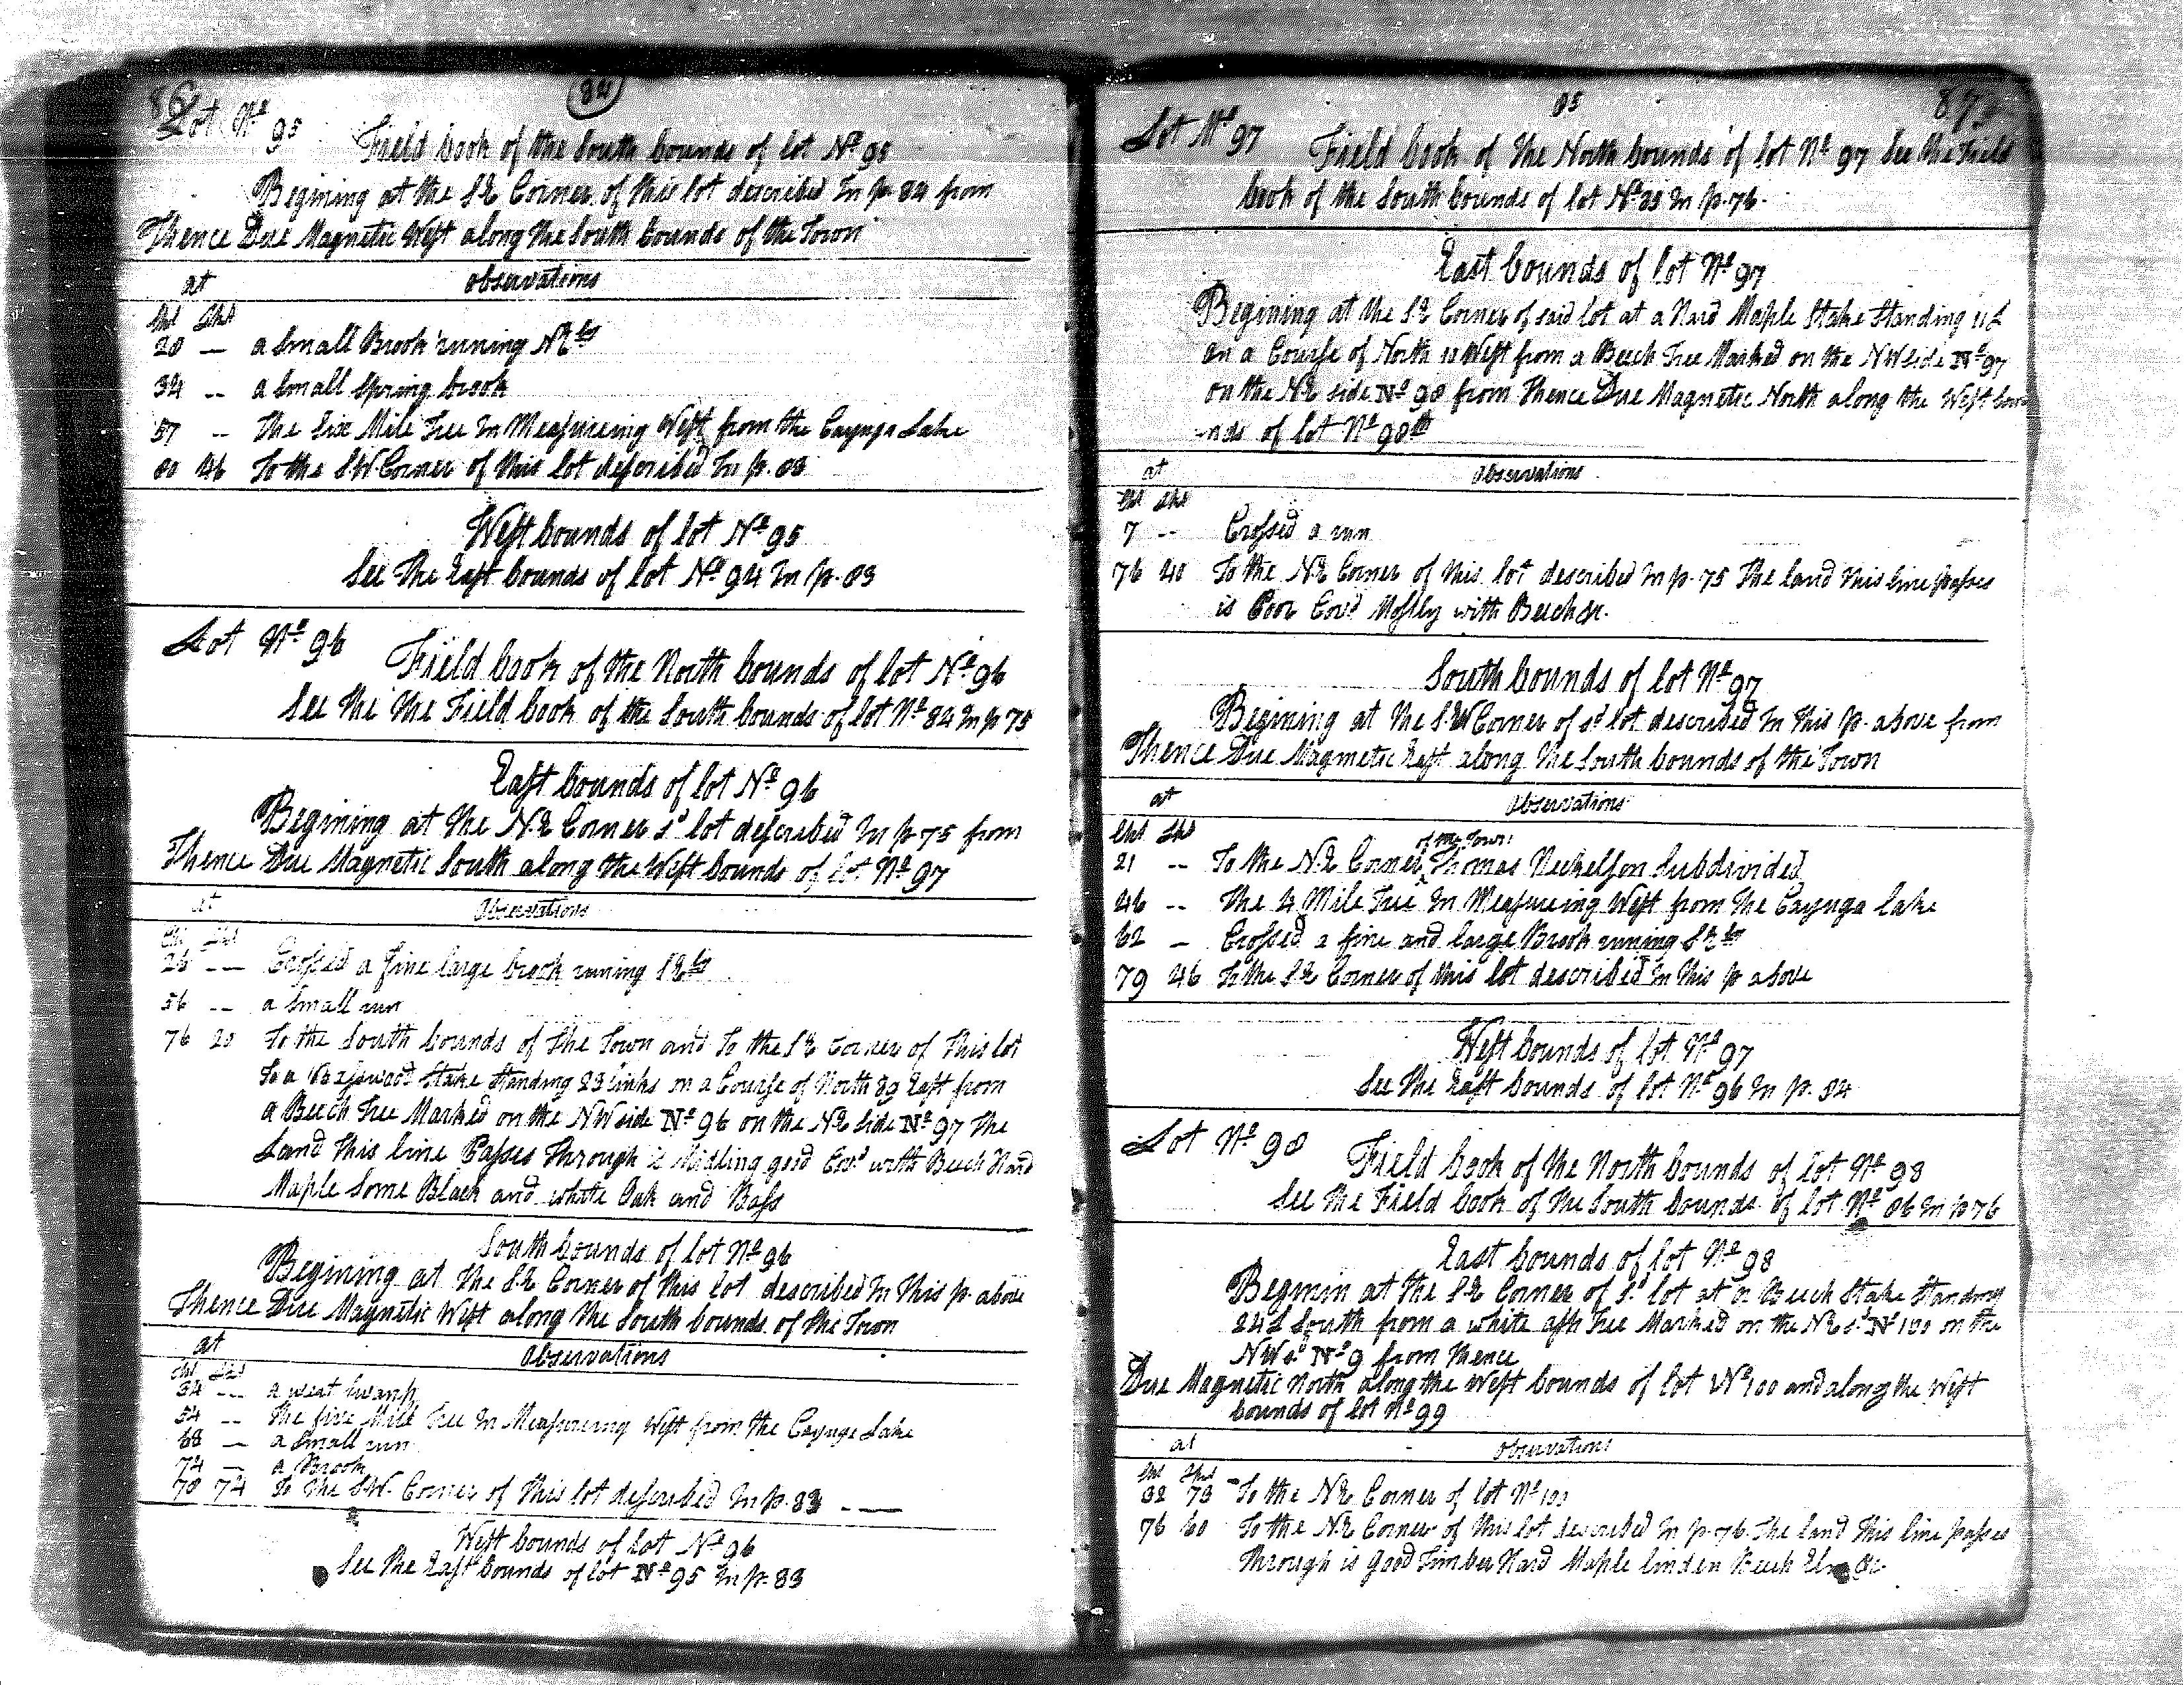 86
84
Lot No 95
Field book of the South bounds of lot No 95
Begining at the SE Corner of this lot described In p. 84 from
Thence Due Magnetic West along the South bounds of the Town
at observations
Chs Lks
20 — a Small Brook runing NEly
34 -- a Small Spring brook
57 -- The Six Mile Tree In Measureing West from the Cayuga Lake
80 46 To the SW Corner of this lot described In p. 83
West bounds of lot No 95
See The East bounds of lot No 94 In p. 83
Lot No 96
Field book of the North bounds of lot No 96
See The The Field book of the South bounds of lot No 84 In p 75
East bounds of lot No 96
Begining at the NE Corner sd lot described In p 75 from
Thence Due Magnetic South along the West bounds of lot No 97
at Observations
Chs Lks
26 -- Crossed a fine large brook runing SEly
56 -- a Small run
76 20 To the South bounds of The Town and To the SE Corner of This lot
To a Basswood Stake Standing 23 links on a Course of North 89 East from
a Beech Tree Marked on the NW side No 96 on the NE Side No 97 The
Land this line Passes Through is Midling good Covd with Beech Hard
Maple Some Black and white Oak and Bass
South bounds of lot No 96
Begining at the SE Corner of this lot described In This p. above
Thence Due Magnetic West along the South bounds of the Town
at Observations
Chs Lks
34 -- a wet Swamp
54 -- The five Mile Tree In Measureing West from the Cayuga Lake
68 — a Small run
74 — a Brook
78 74 To The SW. Corner of this lot described In p. 83 - —
West bounds of Lot No 96
See the East bounds of lot No 95 In p. 83
85
87
Lot No 97
Field book of the North bounds of lot No 97 See the Field
book of the South bounds of lot No 85 In p. 76.
East bounds of lot No 97
Begining at the SE Corner of said lot at a Hard Maple Stake Standing 11 L
on a Course of North 11 West from a Beech Tree Marked on the NW side No 97
on the NE side No 98 from Thence Due Magnetic North along the West bou
-nds of lot No 98th
at Observations
Chs Lks
7 -- Crossed a run
76 40 To the NE Corner of this lot described In p. 75 The land this line passes
is Poor Covd Mostly with Beech &c.
South bounds of lot No 97
Begining at the SW Corner of sd lot described In This p. above from
Thence Due Magnetic East along the South bounds of the Town
at Observations
Chs Lks
21 -- To the NE Corner of the Town Thomas Neckelson Subdivided
46 -- The 4 Mile Tree In Measureing West from The Cayuga lake
62 — Crossed a fine and large Brook runing SEly
79 46 To the SE Corner of this lot described In This p above
West bounds of lot No 97
See the East bounds of lot No 96 In p. 84
Lot No 98
Field book of the North bounds of lot No 98
See the Field book of the South bounds of lot No 86 In p 76
East bounds of lot No 98
Beginin at the SE Corner of sd lot at a Beech Stake Standing
24 L South from a white ash Tree Marked on the NE sd No 100 on the
NW sd No 9 from thence
Due Magnetic North along the West bounds of lot No 100 and along the West
bounds of lot No 99
at Observations
Chs Lks
32 73 To the NE Corner of lot No 100
76 60 To the NE Corner of this lot described In p. 76. The Land This line passes
Through is Good Timber Hard Maple linden Beech Elm &c.